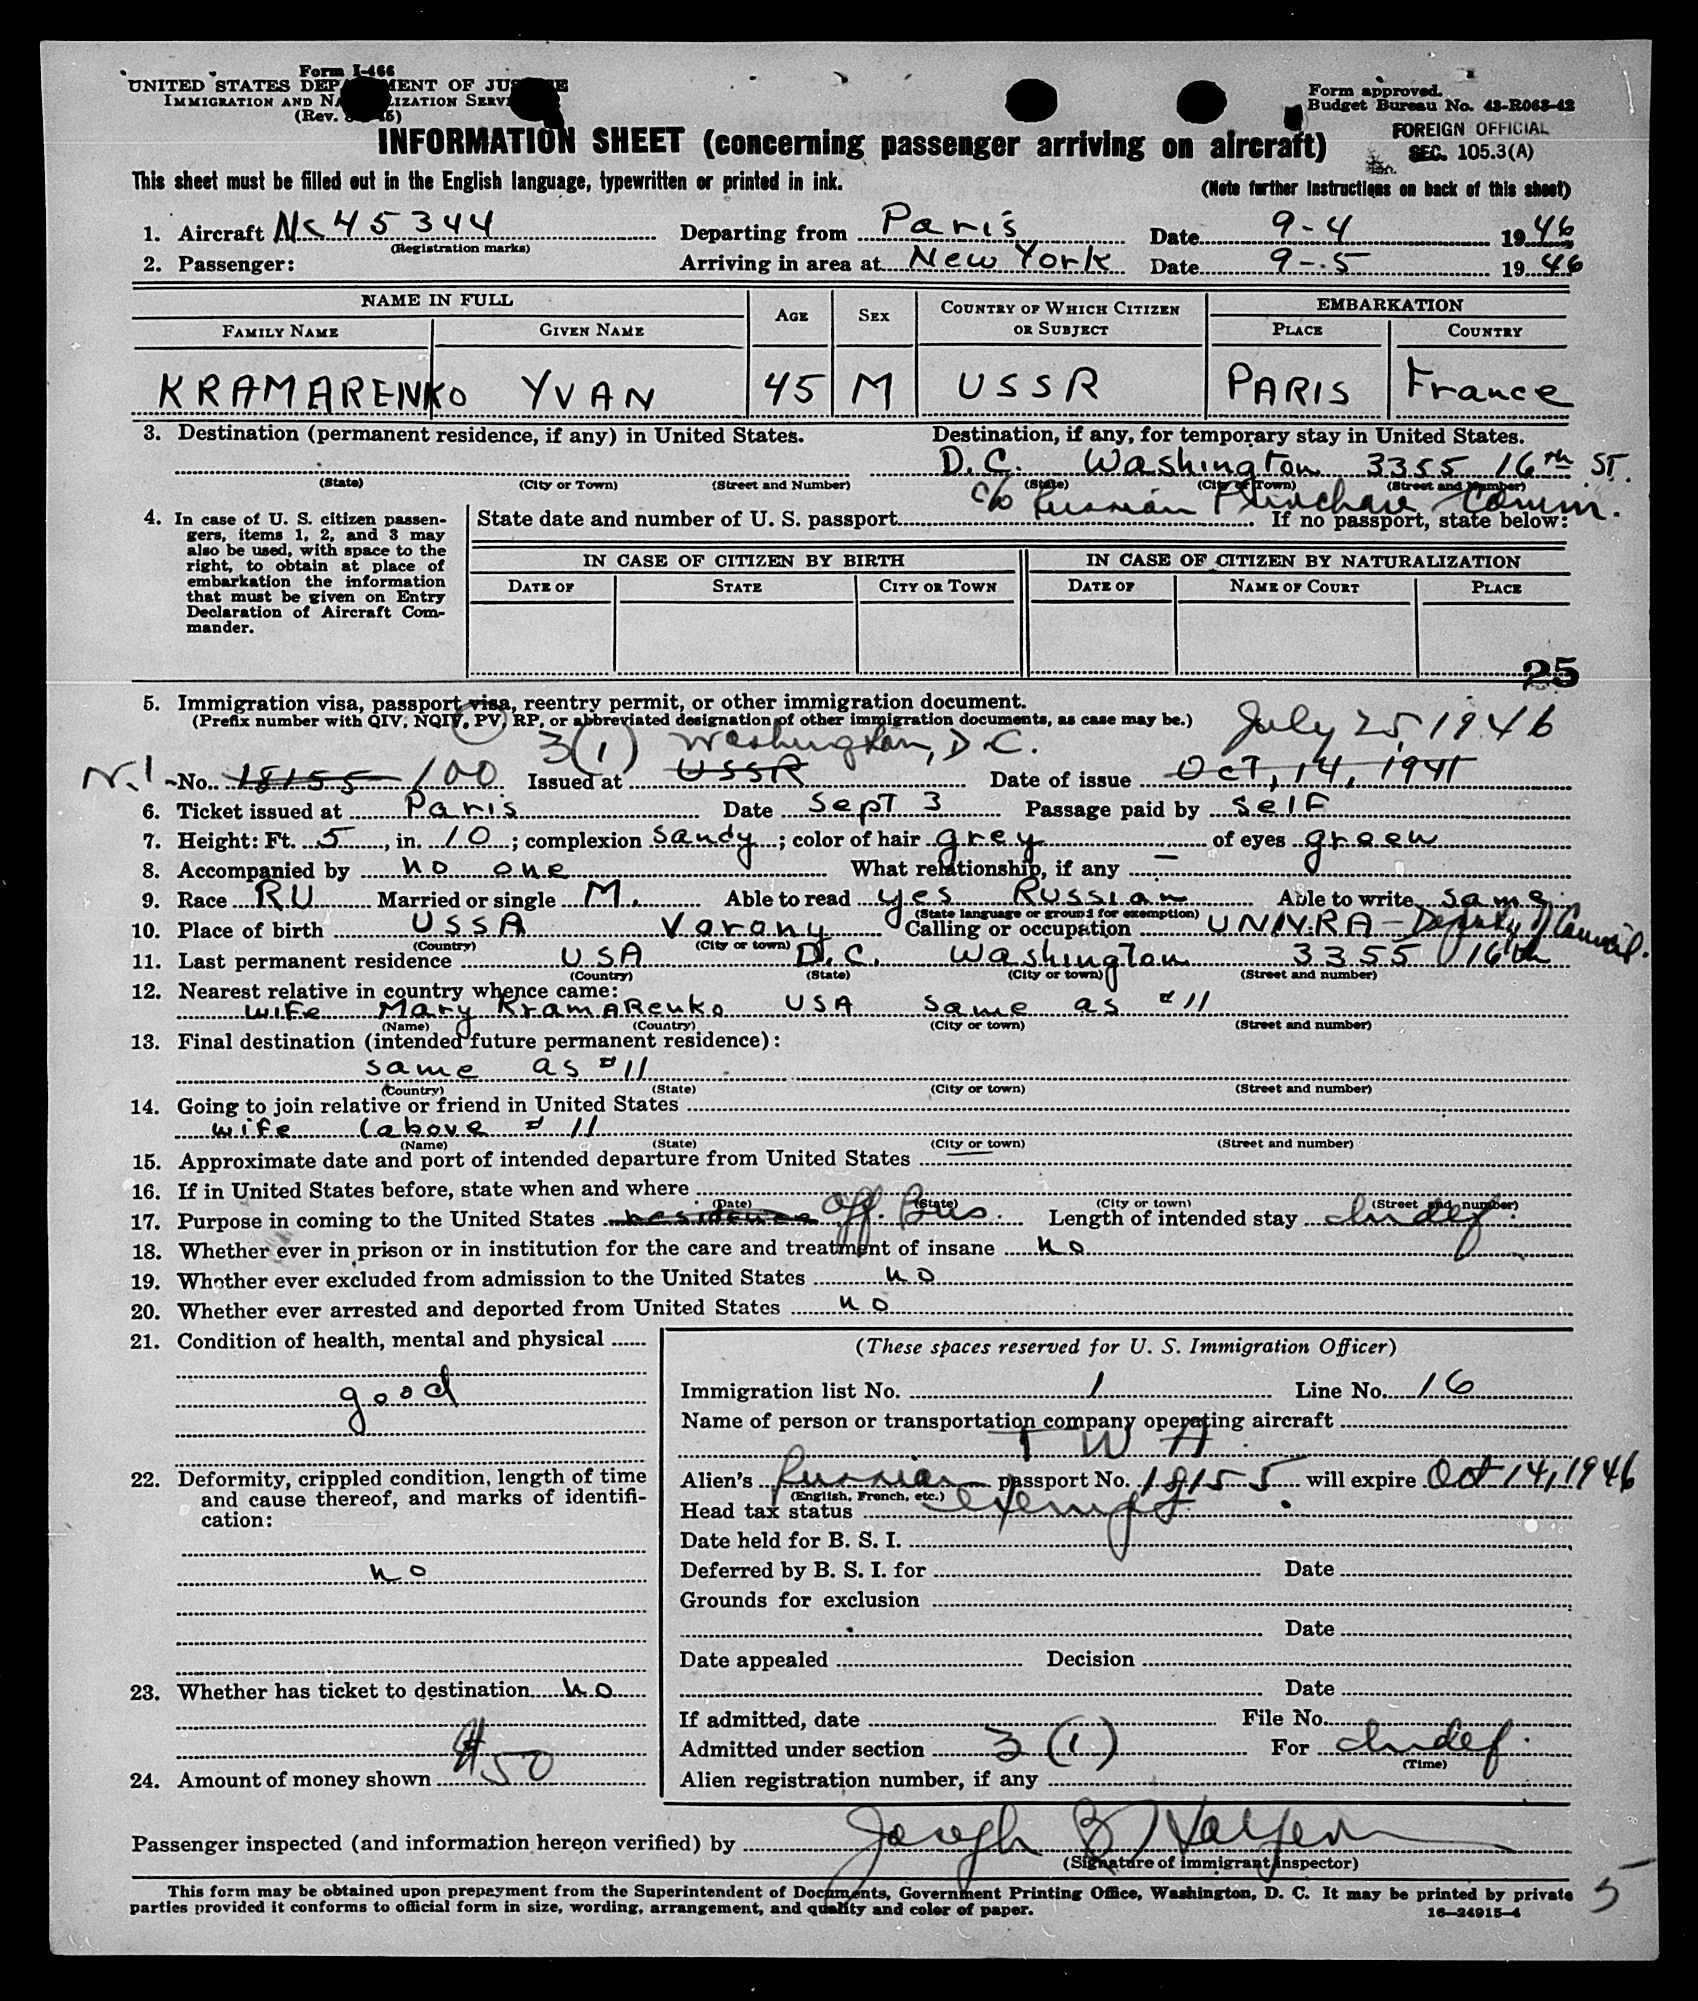 Form I-466
UNITED STATES DEPARTMENT OF JUSTICE
IMMIGRATION AND NATURALIZATION SERVICE
(Rev.
Form approved.
Budget Bureau No. 43-R063-42
FOREIGN OFFICIAL
SEC. 105.3(A)
INFORMATION SHEET (concerning passenger arriving on aircraft)
This sheet must be filled out in the English language, typewritten or printed in ink.
(Note further instructions on back of this sheet)
1. Aircraft Nc 45344 Departing from Paris Date 9-4 1946
(Registration marks)
2. Passenger: Arriving in area at New York Date 9-5 1946
NAME IN FULL AGE SEX COUNTRY OF WHICH CITIZEN OR SUBJECT EMBARKATION
FAMILY NAME GIVEN NAME PLACE COUNTRY
KRAMARENKO YVAN 45 M USSR PARIS France
3. Destination (permanent residence, if any) in United States. Destination, if any, for temporary stay in United States.
D.C. Washington 3355 16th ST.
(State) (City or Town) (Street and Number) (State) (City or Town) (Street and Number)
c/o Russian Comm.
4. In case of U. S. citizen passengers, items 1, 2, and 3 may also be used, with space to the right, to obtain at place of embarkation the information that must be given on Entry Declaration of Aircraft Commander.
State date and number of U. S. passport If no passport, state below:
IN CASE OF CITIZEN BY BIRTH IN CASE OF CITIZEN BY NATURALIZATION
DATE OF STATE CITY OR TOWN DATE OF NAME OF COURT PLACE
25
5. Immigration visa, passport visa, reentry permit, or other immigration document.
(Prefix number with QIV, NQIV, PV, RP, or abbreviated designation of other immigration documents, as case may be.)
3(1) Washington, D.C. July 25, 1946
No. 18155 100 Issued at USSR Date of issue Oct, 14, 1941
6. Ticket issued at Paris Date Sept 3 Passage paid by self
7. Height: Ft. 5, in. 10; complexion Sandy; color of hair grey of eyes green
8. Accompanied by no one What relationship, if any —
9. Race RU Married or single M. Able to read yes Russian Able to write same
(State language or ground for exemption)
10. Place of birth USSA Varony Calling or occupation UNNRA - Deputy of Council.
(Country) (City or town)
11. Last permanent residence USA D.C. Washington 3355 16th
(Country) (State) (City or town) (Street and number)
12. Nearest relative in country whence came:
wife Mary KramaRenko USA same as #11
(Name) (Country) (City or town) (Street and number)
13. Final destination (intended future permanent residence):
same as #11
(Country) (State) (City or town) (Street and number)
14. Going to join relative or friend in United States
wife (above #11
(Name) (State) (City or town) (Street and number)
15. Approximate date and port of intended departure from United States
16. If in United States before, state when and where
(Date) (State) (City or town) (Street and number)
17. Purpose in coming to the United States residence Off. Bus. Length of intended stay Indef.
18. Whether ever in prison or in institution for the care and treatment of insane no
19. Whether ever excluded from admission to the United States no
20. Whether ever arrested and deported from United States no
21. Condition of health, mental and physical
good
22. Deformity, crippled condition, length of time and cause thereof, and marks of identification:
no
23. Whether has ticket to destination no
24. Amount of money shown $50
(These spaces reserved for U. S. Immigration Officer)
Immigration list No. 1 Line No. 16
Name of person or transportation company operating aircraft
TWA
Alien's Russian passport No. 18155 will expire Oct 14, 1946
(English, French, etc.)
Head tax status exempt
Date held for B. S. I.
Deferred by B. S. I. for Date
Grounds for exclusion
Date
Date appealed Decision
Date
If admitted, date File No.
Admitted under section 3(1) For Indef.
(Time)
Alien registration number, if any
Passenger inspected (and information hereon verified) by Joseph B Halpern
(Signature of immigrant inspector)
This form may be obtained upon prepayment from the Superintendent of Documents, Government Printing Office, Washington, D. C. It may be printed by private
parties provided it conforms to official form in size, wording, arrangement, and quality and color of paper.
16-24915-4
5